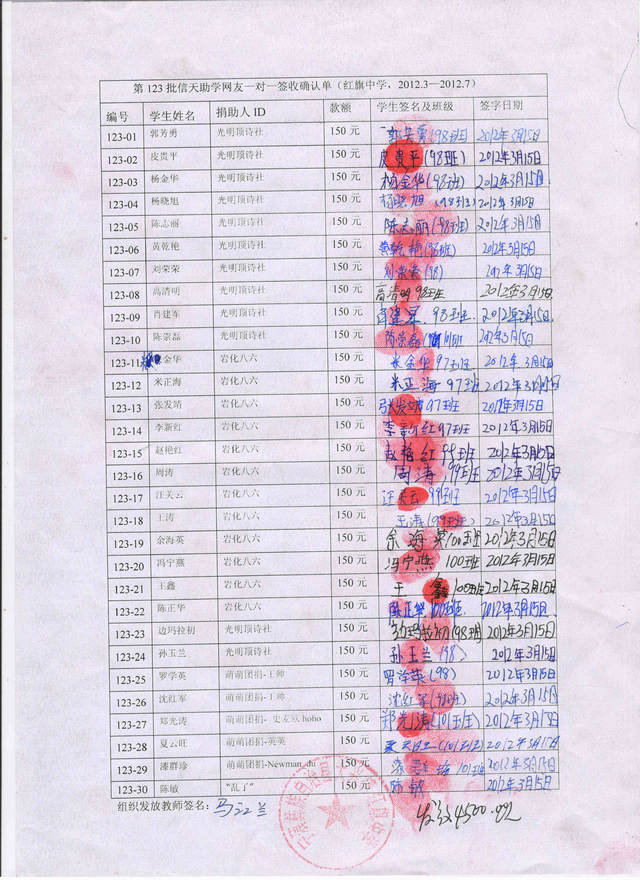 第 123 批信天助学网友一对一签收确认单（红旗中学，2012.3—2012.7）
编号 学生姓名 捐助人 ID 款额 学生签名及班级 签字日期
123-01 郭芳勇 光明顶诗社 150 元 (98班) 2012年3月15日
123-02 皮贵平 光明顶诗社 150 元 皮贵平(98班) 2012年3月15日
123-03 杨金华 光明顶诗社 150 元 杨金华(98班) 2012年3月15日
123-04 杨晓旭 光明顶诗社 150 元 杨晓旭 (98班) 2012年3月15日
123-05 陈志丽 光明顶诗社 150 元 陈志丽(98班) 2012年3月15日
123-06 黄乾艳 光明顶诗社 150 元 黄乾艳(98班) 2012年3月15日
123-07 刘荣荣 光明顶诗社 150 元 刘荣荣(98) 2012年3月15日
123-08 高清明 光明顶诗社 150 元 高清明 98班 2012年3月15日
123-09 肖建军 光明顶诗社 150 元 肖建军 98班 2012年3月15日
123-10 陈崇磊 光明顶诗社 150 元 陈崇磊 2012年3月15日
123-11 金华 岩化八六 150 元 米金华 97班 2012年3月15日
123-12 米正海 岩化八六 150 元 米正海 97班 2012年3月15日
123-13 张发靖 岩化八六 150 元 张发靖 97班 2012年3月15日
123-14 李新红 岩化八六 150 元 李新红 97班 2012年3月15日
123-15 赵艳红 岩化八六 150 元 赵艳红 99班 2012年3月15日
123-16 周涛 岩化八六 150 元 周涛,99班 2012年3月15日
123-17 汪关云 岩化八六 150 元 汪关云 99班 2012年3月15日
123-18 王涛 岩化八六 150 元 王涛(99班) 2012年3月15日
123-19 余海英 岩化八六 150 元 余海英 100班 2012年3月15日
123-20 冯宁燕 岩化八六 150 元 冯宁燕 100班 2012年3月15日
123-21 王鑫 岩化八六 150 元 王鑫 100班 2012年3月15日
123-22 陈正华 岩化八六 150 元 陈正华 100班 2012年3月15日
123-23 边玛拉初 光明顶诗社 150 元 边玛拉初(98班) 2012年3月15日
123-24 孙玉兰 光明顶诗社 150 元 孙玉兰(98) 2012年3月15日
123-25 罗学英 萌萌团捐-王帅 150 元 罗学英(98) 2012年3月15日
123-26 沈红军 萌萌团捐-王帅 150 元 沈红军(98班) 2012年3月15日
123-27 郑光涛 萌萌团捐- 史麦欧 hoho 150 元 郑光涛(101班) 2012年3月15日
123-28 夏云旺 萌萌团捐-英英 150 元 夏云旺(101班) 2012年3月15日
123-29 漆群珍 萌萌团捐-Newman_du 150 元 101班 2012年3月15日
123-30 陈敏 “乱了” 150 元 陈敏 2012年3月15日
组织发放教师签名： 马江兰 发放4500元